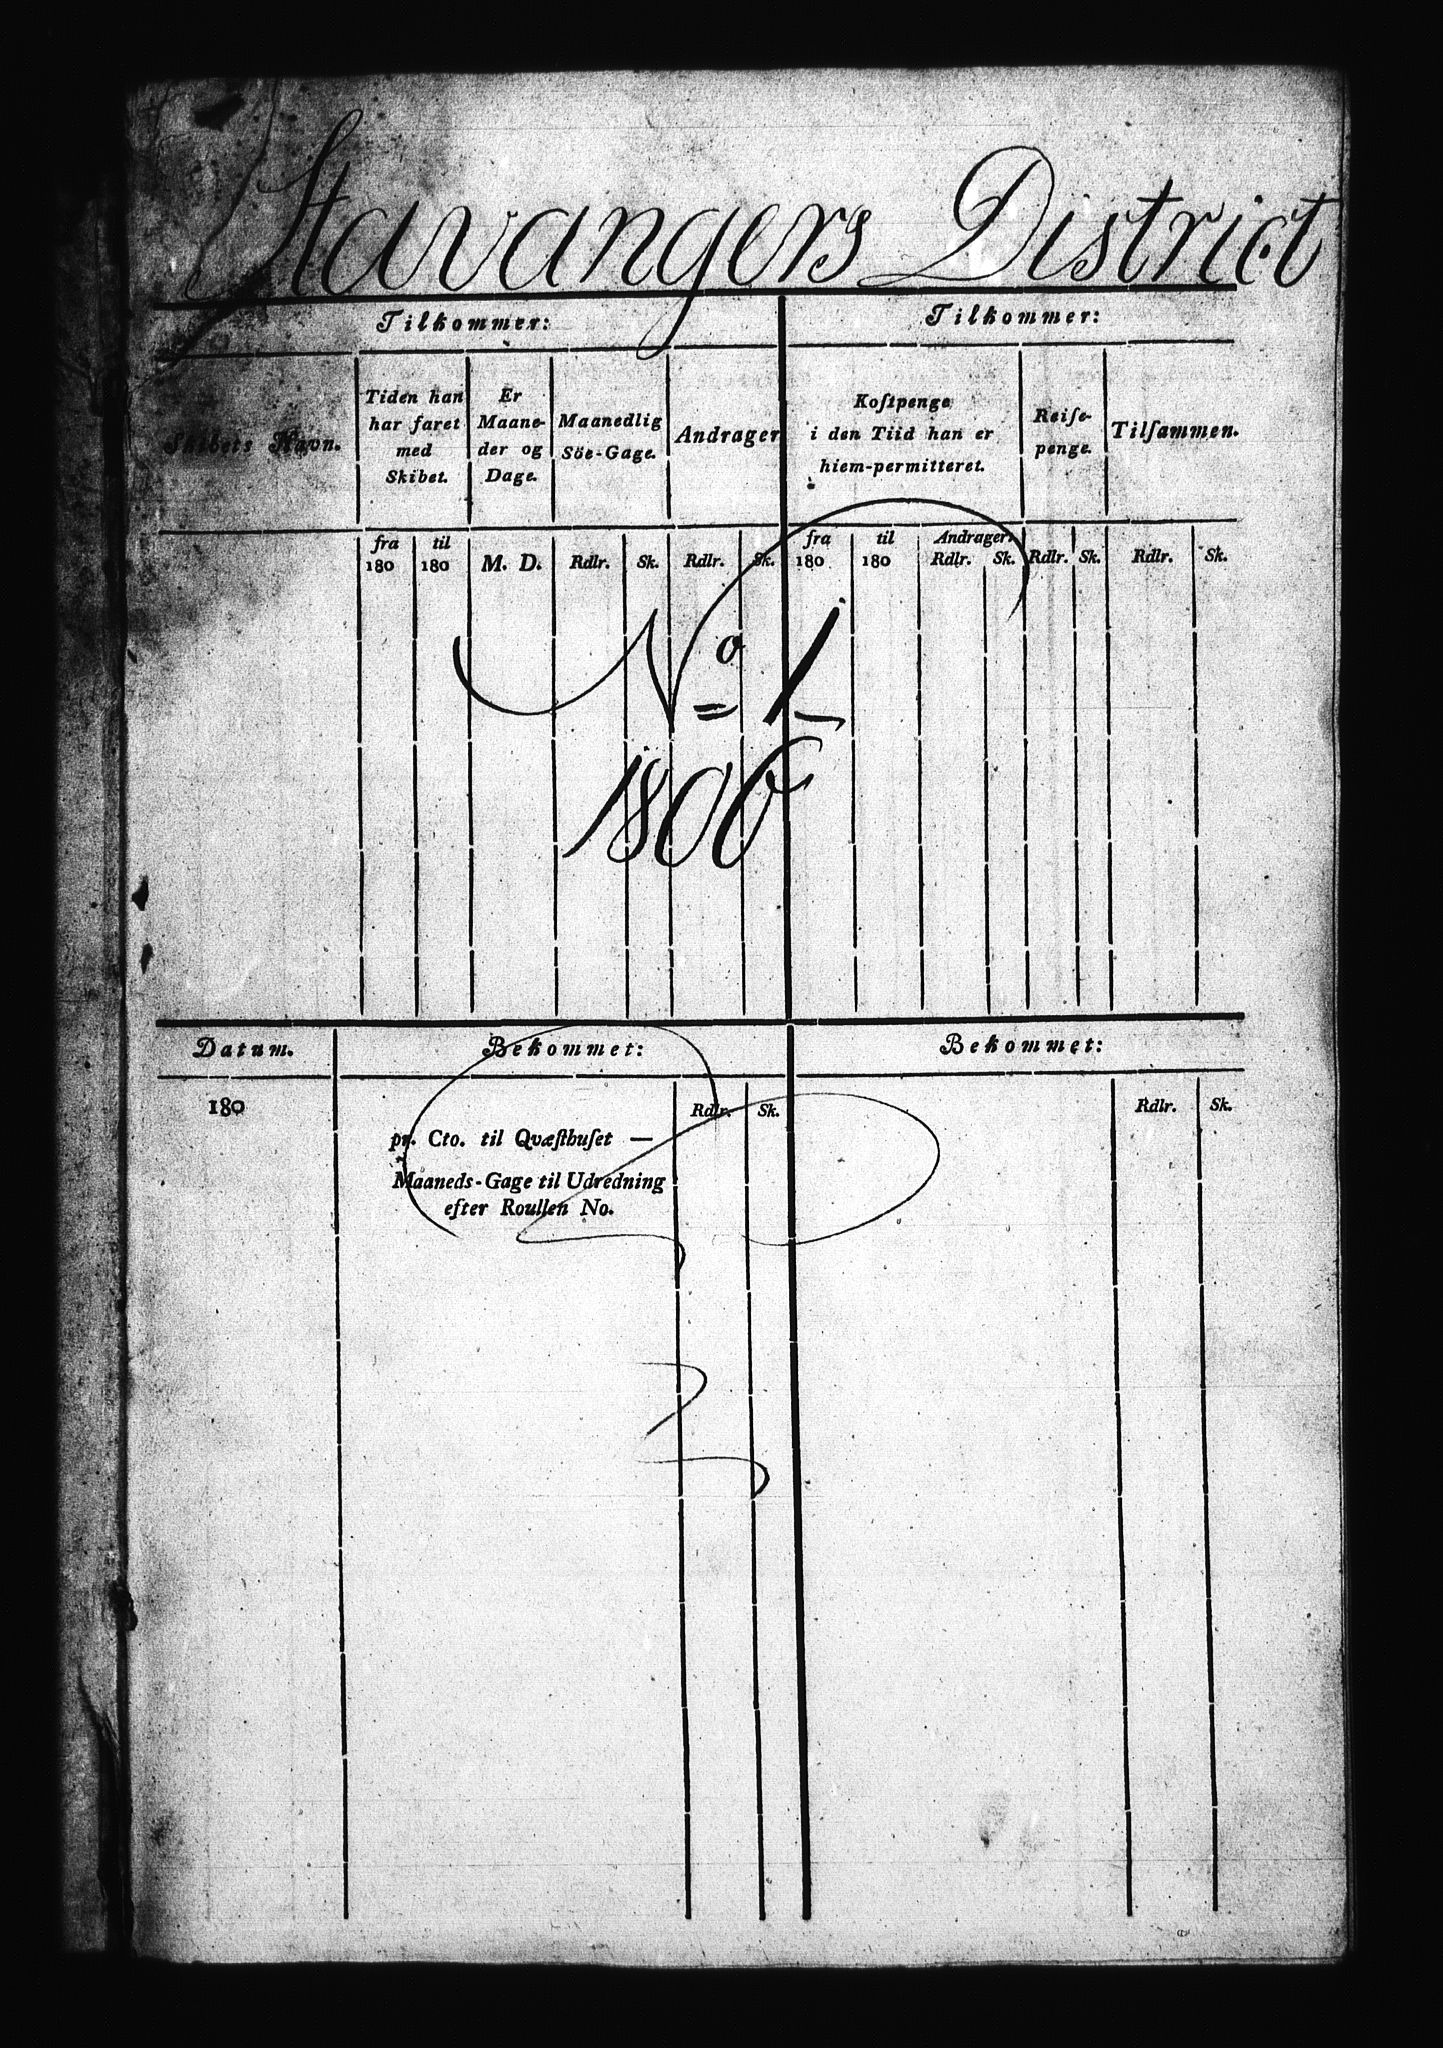 Stavangers District
Tilkommer: Tilkommer:
Skibets Navn. Tiden han har faret med Skibet. Er Maane-der og Dage. Maanedlig Söe-Gage. Andrager Koſtpenge i den Tiid han er hiem-permitteret. Reiſe-penge. Tilſammen.
fra 180 til 180 M. D. Rdlr. Sk. Rdlr. Sk. fra 180 til 180 Andrager. Rdlr. Sk. Rdlr. Sk. Rdlr. Sk.
No 1
1806
Datum. Bekommet: Bekommet:
180 Rdlr. Sk. Rdlr. Sk.
pr. Cto. til Qvæſthuſet —
Maaneds-Gage til Udredning
efter Roullen No.